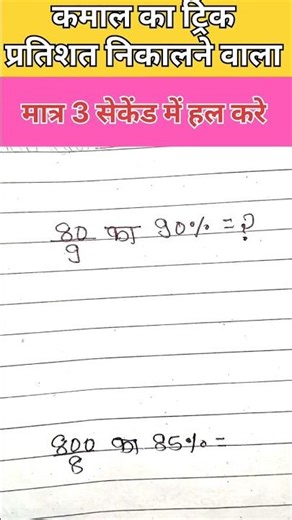 कमाल का ट्रिक
प्रतिशत निकालने वाला
मात्र 3 सेकेंड में हल करे
80/9 का 90% = ?
800/8 का 85% =